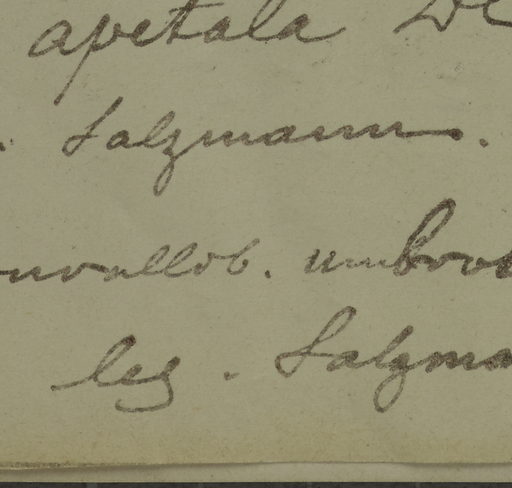 apetala DC
. Salzmann.
nvallob. umbros
leg. Salzma